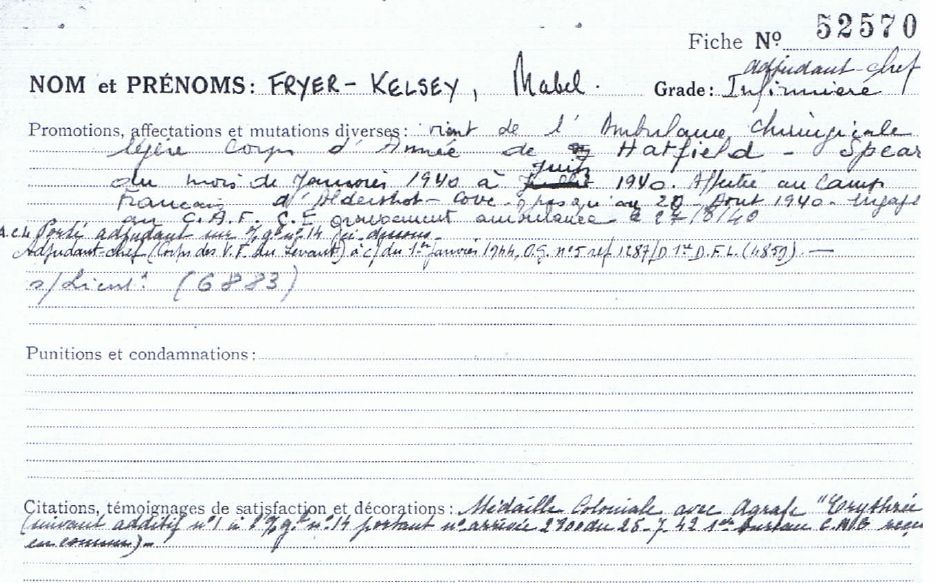 Fiche Nº 52570
adjudant-chef
NOM et PRÉNOMS: FRYER-KELSEY, Mabel. Grade: Infirmière
Promotions, affectations et mutations diverses: vient de l'Ambulance Chirurgicale
légère Corps d'Armée de Hatfield - Spear
juin
du mois de Janvier 1940 à 1940. Affectée au Camp
Francais d'Aldershot-Cove jusqu'au 20 Aout 1940. engagé
au C.A.F. C.F groupement ambulance 27/8/40
A.C.L. Porté adjudant sur nº 14 ci-dessous.
Adjudant-chef (Corps des V.F. du Levant) à c/ du 1er janvier 1944, O.G. nº5 ref 1287/D 1re D.F.L. (4859). —
s/Lieut. (6883)
Punitions et condamnations:
Citations, témoignages de satisfaction et décorations: Médaille Coloniale avec Agrafe "Erythrée
(suivant additif nº1 à nº14 portant nº arrivée 2700 du 25-7-42 1er bureau
en commun).-